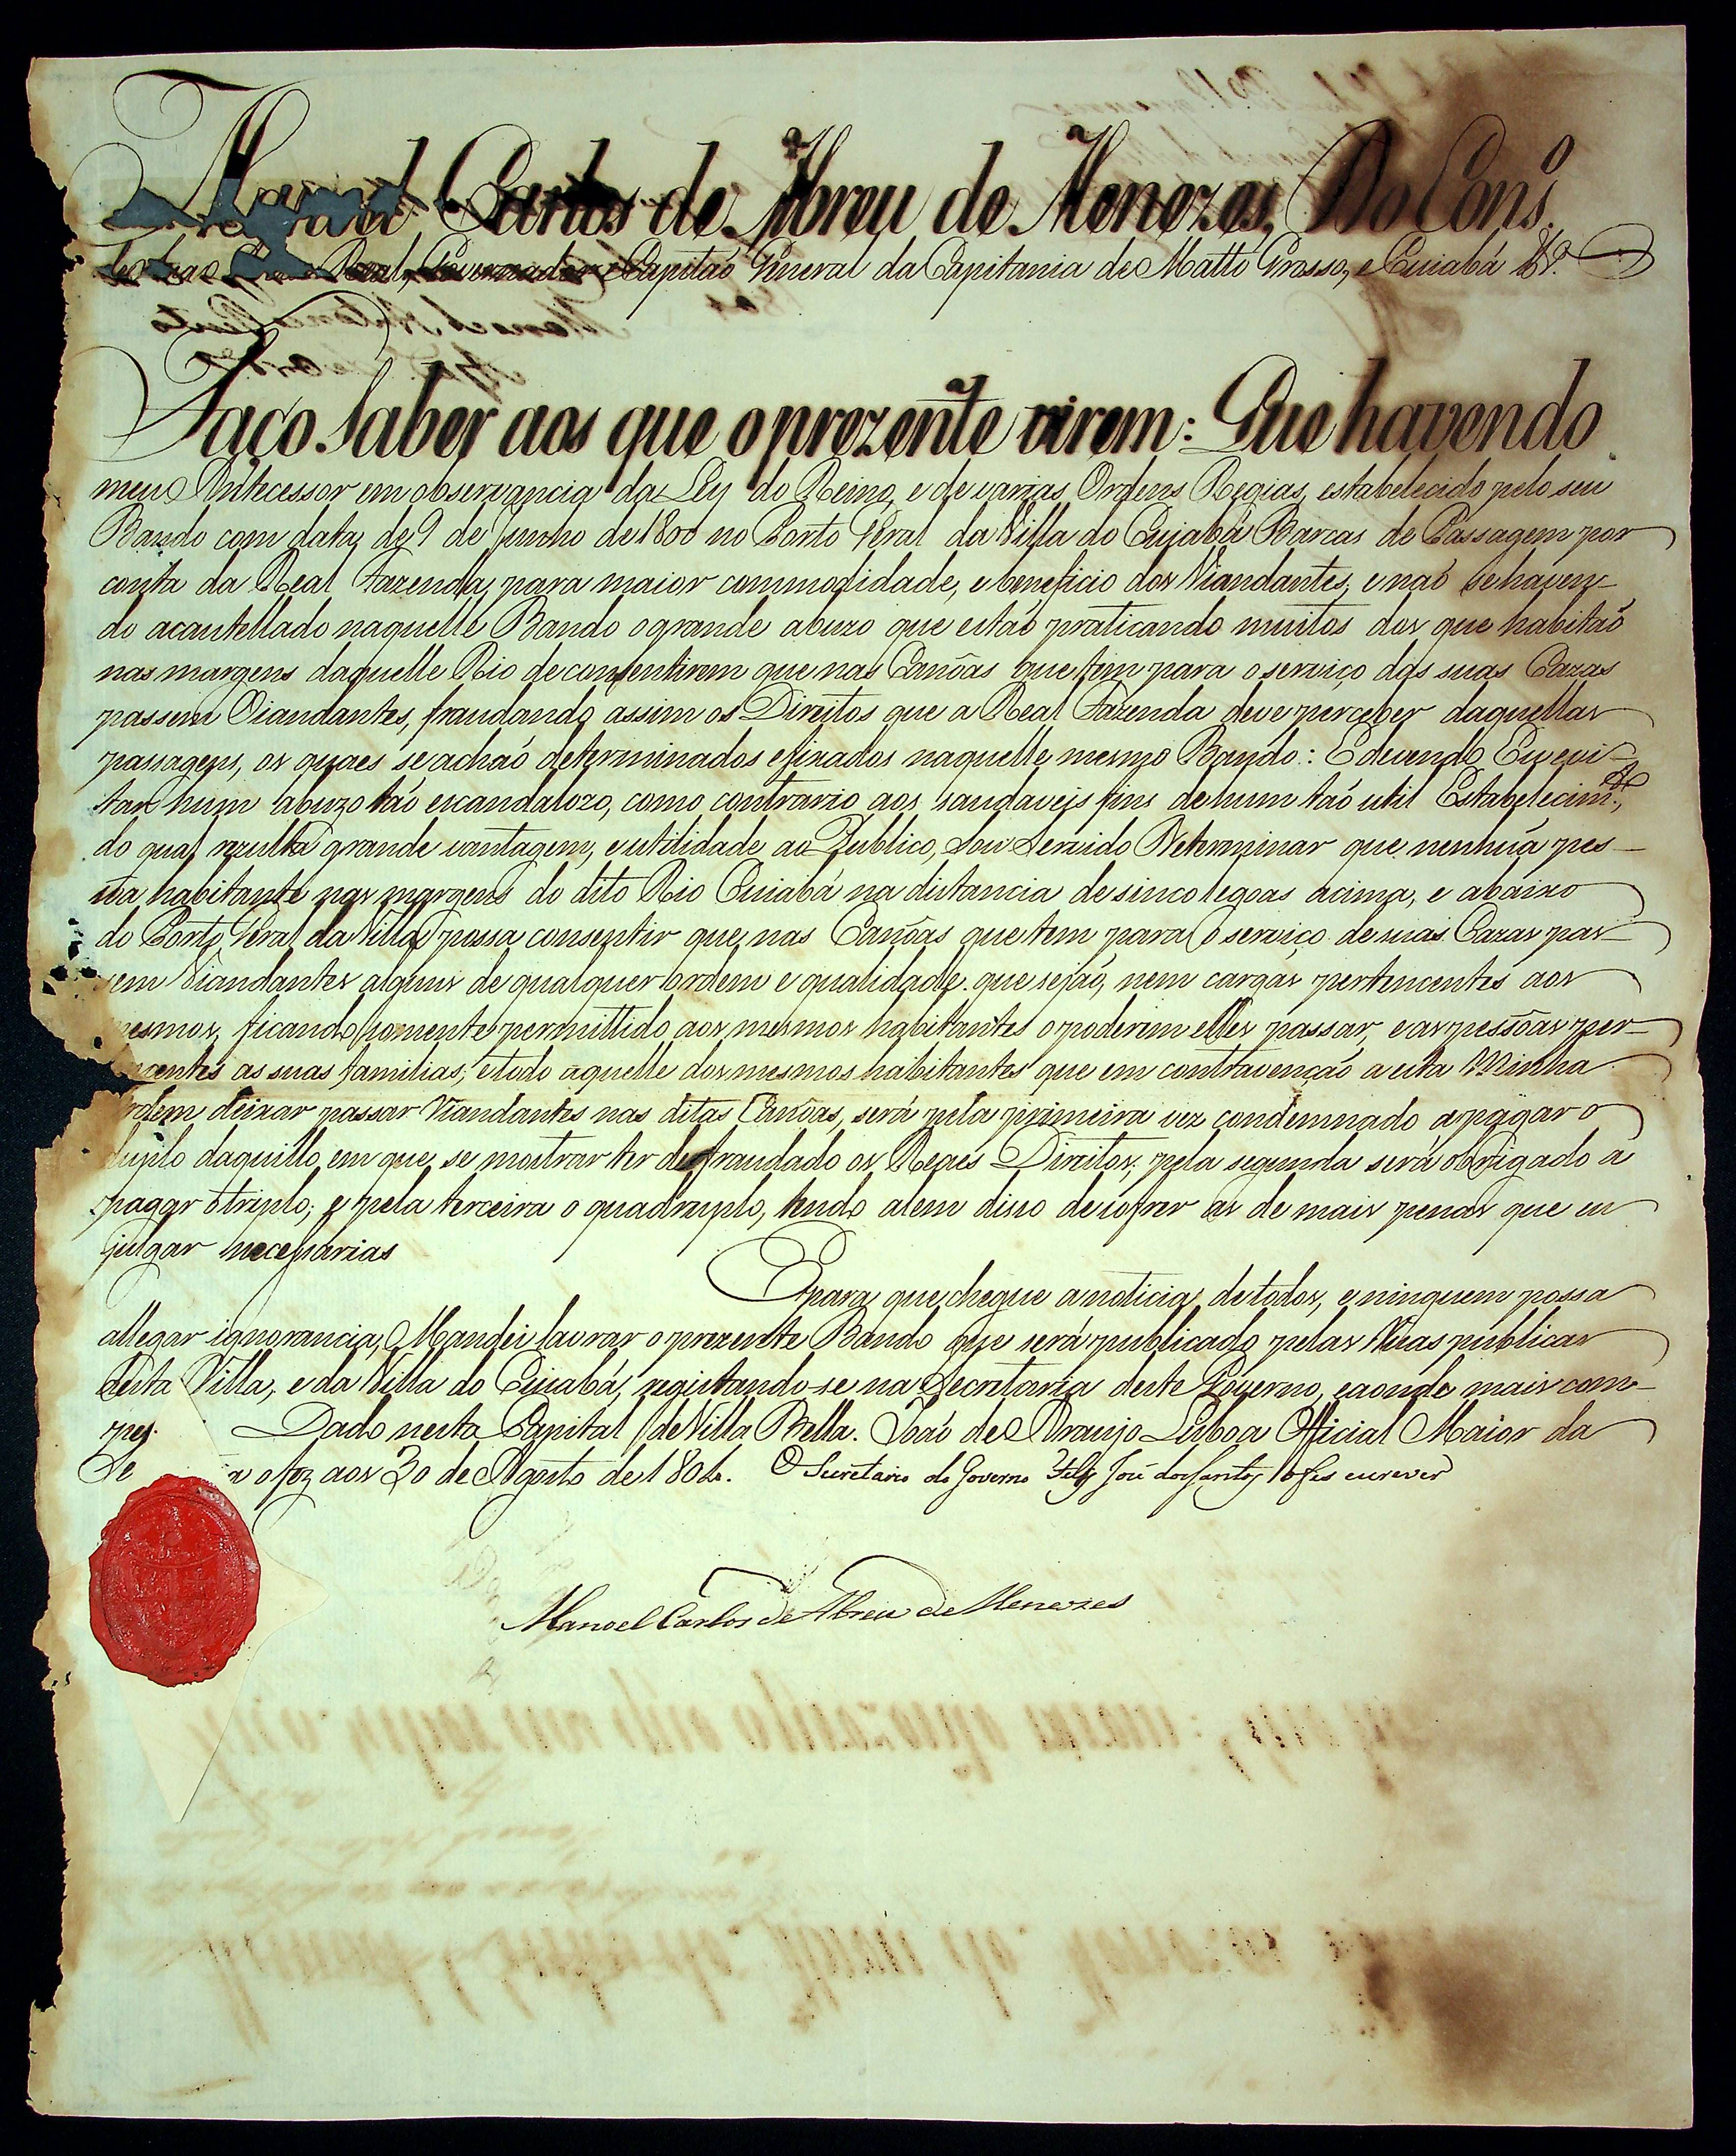 Manoel Carlos de Abreu de Menezes, Do Cons.º
de Sua Real, Governador e Capitaõ General da Capitania de Matto Grosso, e Cuiabá &.ª
Faço Saber aos que o prezente virem: Que havendo
meu Antecessor em observancia da Ley do Reino, e de varias Ordens Regias, estabelecido pelo seu
Bando com data de 9 de Junho de 1800 no Porto Geral da Villa do Cuiabá Barcas de Passagem por
conta da Real Fazenda, para maior commodidade, e beneficio dos Viandantes, e naõ se haven-
do acautellado naquelle Bando o grande abuzo que estaõ praticando muitos dos que habitaõ
nas margens daquelle Rio de consentirem que nas Canôas que tem para o serviço das suas Cazas
passem Viandantes, fraudando assim os Direitos que a Real Fazenda deve perceber daquellas
passagens, os quaes se achaõ determinados e fixados naquelle mesmo Bando: E devendo Eu evi-
tar hum abuzo taõ escandalozo, como contrario aos saudaveis fins de hum taõ util Estabelecim.to,
do qual rezulta grande vantagem, e utilidade ao Publico, Sou Servido Determinar que nenhuã pes-
soa habitante nas margens do dito Rio Cuiabá na distancia de sinco legoas acima, e abaixo
do Porto Geral da Villa possa consentir que nas Canôas que tem para o serviço de suas Cazas pas-
sem Viandantes alguns de qualquer ordem e qualidade que sejaõ, nem cargas pertencentes aos
mesmos, ficando somente permittido aos mesmos habitantes o poderem elles passar, e as pessôas per-
tencentes as suas familias; e todo aquelle dos mesmos habitantes que em contravençaõ a esta Minha
Ordem deixar passar Viandantes nas ditas Canôas, será pela primeira vez condemnado a pagar o
duplo daquillo em que se mostrar ter defraudado os Regios Direitos, pela segunda será obrigado a
pagar o triplo; e pela terceira o quadruplo, tendo alem disso de sofrer as de mais penas que eu
julgar necessarias
E para que chegue a noticia de todos, e ninguem possa
allegar ignorancia, Mandei lavrar o prezente Bando que será publicado pelas Ruas publicas
desta Villa, e da Villa do Cuiabá, registando-se na Secretaria deste Governo, e aonde mais com-
pet Dado nesta Capital de Villa Bella. Joaõ de Araujo Lisboa Official Maior da
Se a o fez aos 30 de Agosto de 1804. O Secretario do Governo José dos Santos o fis escrever
Manoel Carlos de Abreu de Menezes